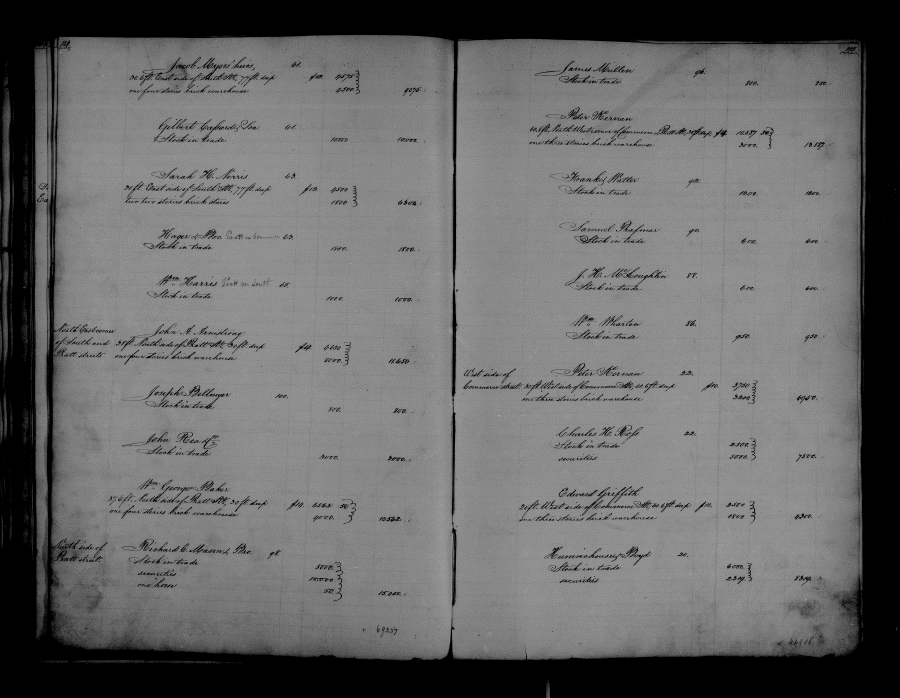 Jacob Myers' heirs, 61.
30.6 ft. East side of South Str, 77 ft. deep $150. 4575
one four stories brick warehouse 4500. 9075.
Gilbert Cassard & Son 61.
Stock in trade 10000 10000.
Sarah H. Norris 63.
30 ft. East side of South Str, 77 ft. deep $150. 4500
two two stories brick stores 1800. 6300.
Hager & Bro. 63.
Stock in trade 1800. 1800.
Wm. Harris 65.
Stock in trade 1000. 1000.
North East corner of South and Pratt streets
John A. Armstrong
38 ft. North side of Pratt Str, 30 ft. deep
one four stories brick warehouse 5000. 11.650
Joseph Bellenger 100.
Stock in trade 800. 800.
John Rea & Co
Stock in trade 2000. 2000.
Wm. George Baker
37.6 ft. North side of Pratt Str, 30 ft. deep 6562 50
one four stories brick warehouse 4000. 10.562
North side of Pratt street.
Richard C. Mason & Bro. 98
Stock in trade 5000.
securities 10.000
one horse 50. 15.050.
69237
James Mullen 96.
Stock in trade 800. 800.
Peter Kernan
one three stories brick warehouse 3000. 13.587.
Frank & Walter 92.
Stock in trade 1200. 1200
Samuel 90.
Stock in trade 600. 600.
J. H. McLoughlin 88.
Stock in trade 600. 600.
Wm. Wharton 86.
Stock in trade 950. 950.
West side of Commerce street.
Peter Kernan 22.
30 ft. West side of Commerce Str, 40.6 ft. deep 3750
one three stories brick warehouse 3000. 6750.
Charles H. Ross 22.
Stock in trade 2500.
securities 5000. 7500.
Edward Griffith
20 ft. West side of Commerce Str, 40.6 ft. deep 2500
one three stories brick warehouse 1800. 4300.
Huminchouse & Boyd 20.
Stock in trade 6000.
securities 2319. 8319.